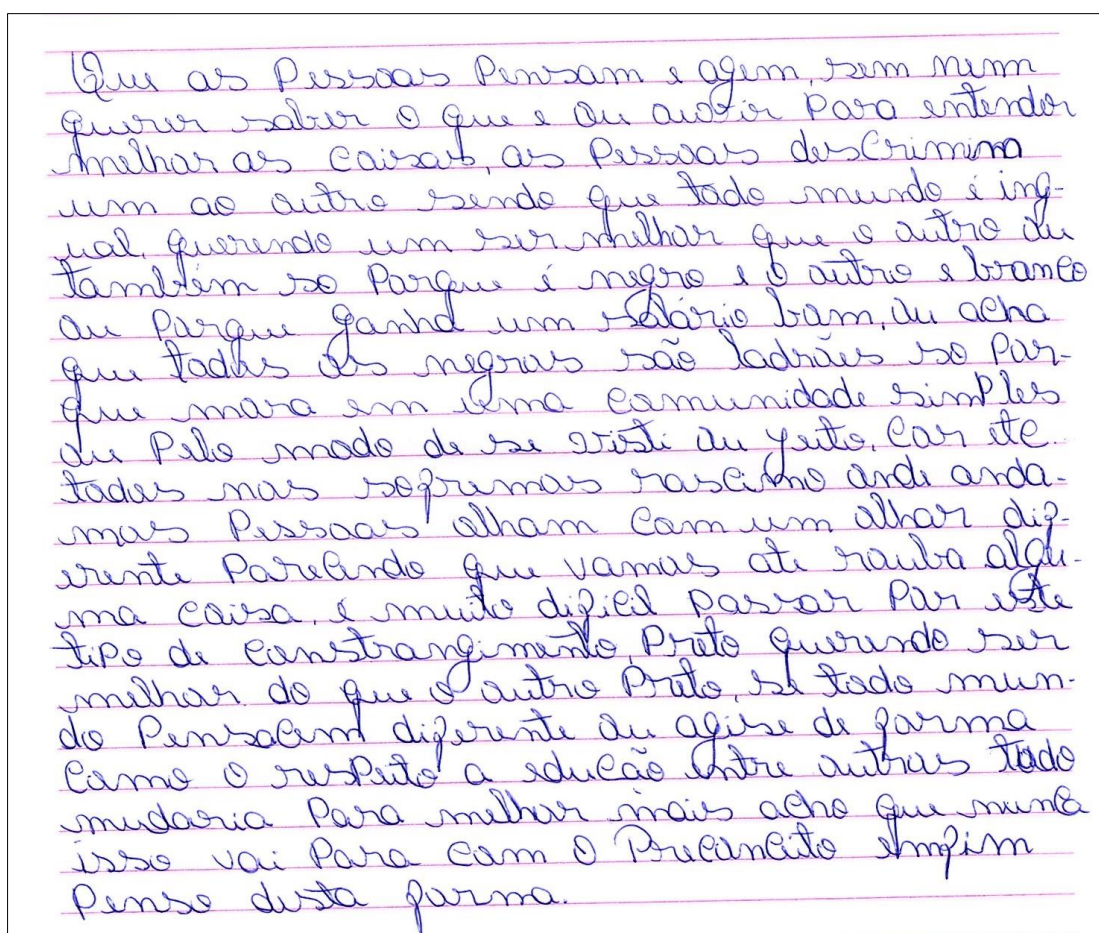 Que as Pessoas Pensam e agem, sem nem
querer saber o que e ou ouvir Para entender
melhor as coisas, as Pessoas desCrimina
um ao outro sendo que todo mundo é ing-
ual, querendo um ser melhor que o outro ou
também so Porque é negro e o outro e branCo
ou Porque ganha um salário bom, ou acha
que todos os negros são ladrões so Por-
que mora em uma comunidade simPles
ou Pelo modo de se visti ou jeito, Cor etc.
todos nos sofremos rascismo onde anda-
mos Pessoas olham Com um olhar dif-
erente PareCendo que vamos ate rouba algu-
ma coisa, é muito difiCil passar Por este
tiPo de Constrangimento, Preto querendo ser
melhor do que o outro Preto, se todo mun-
do PensaCem diferente ou agise de forma
Como o resPeito a eduCão entre outros todo
mudaria Para melhor mais acho que nunCa
isso vai Para com o PreConCeito emfim
Penso desta forma.